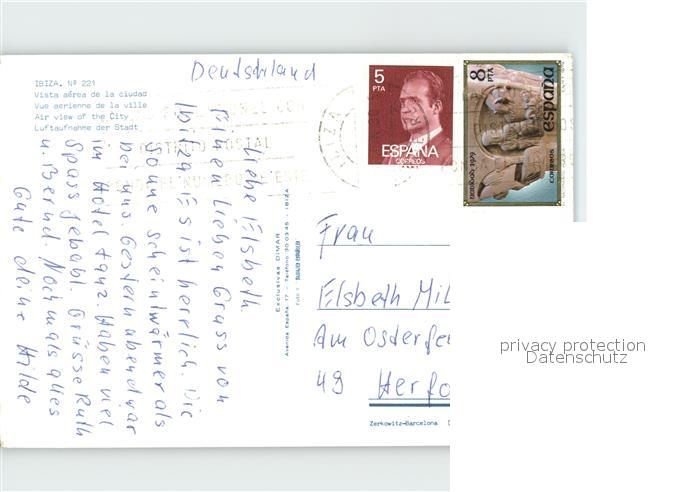 IBIZA. Nº 221
Vista aérea de la ciudad
Vue aerienne de la ville
Air view of the City
Luftaufnahme der Stadt
Deutschland
5
PTA
ESPAÑA
CORREOS
8 PTA
españa
correos
navidad 1979
IBIZA
POSTAL
Liebe Elsbeth.
Einen lieben Gruss von
Ibiza. Es ist herrlich. Die
Sonne scheint wärmer als
bei uns. Gestern abend war
im Hotel Tanz. Haben viel
Spass gehabt. Grüsse Ruth
u. Bernd. Nochmals alles
Gute deine Hilde
Exclusivas DIMAR
Avenida España, 17 - Teléfono 30 03 45 - IBIZA
Frau
Elsbeth Mil
Am Osterfe
49 Herfo
Zerkowitz-Barcelona
privacy protection
Datenschutz